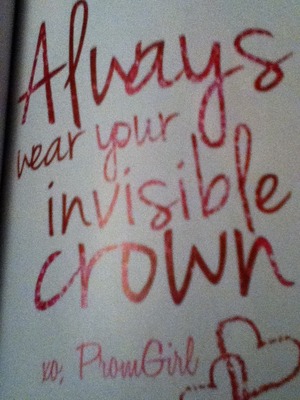 Always
wear your
invisible
crown
xo, PromGirl